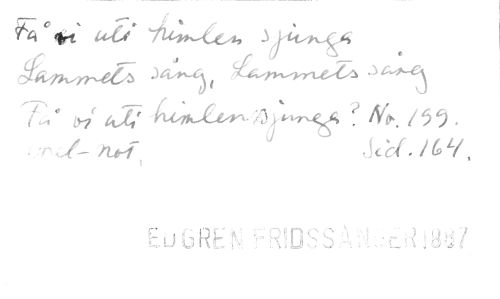 Få vi uti himlen sjunga
Lammets sång, Lammets sång
Få vi uti himlen sjunga? No. 199.
ond-not. Sid. 164.
EDGREN FRIDSSÅNGER 1887